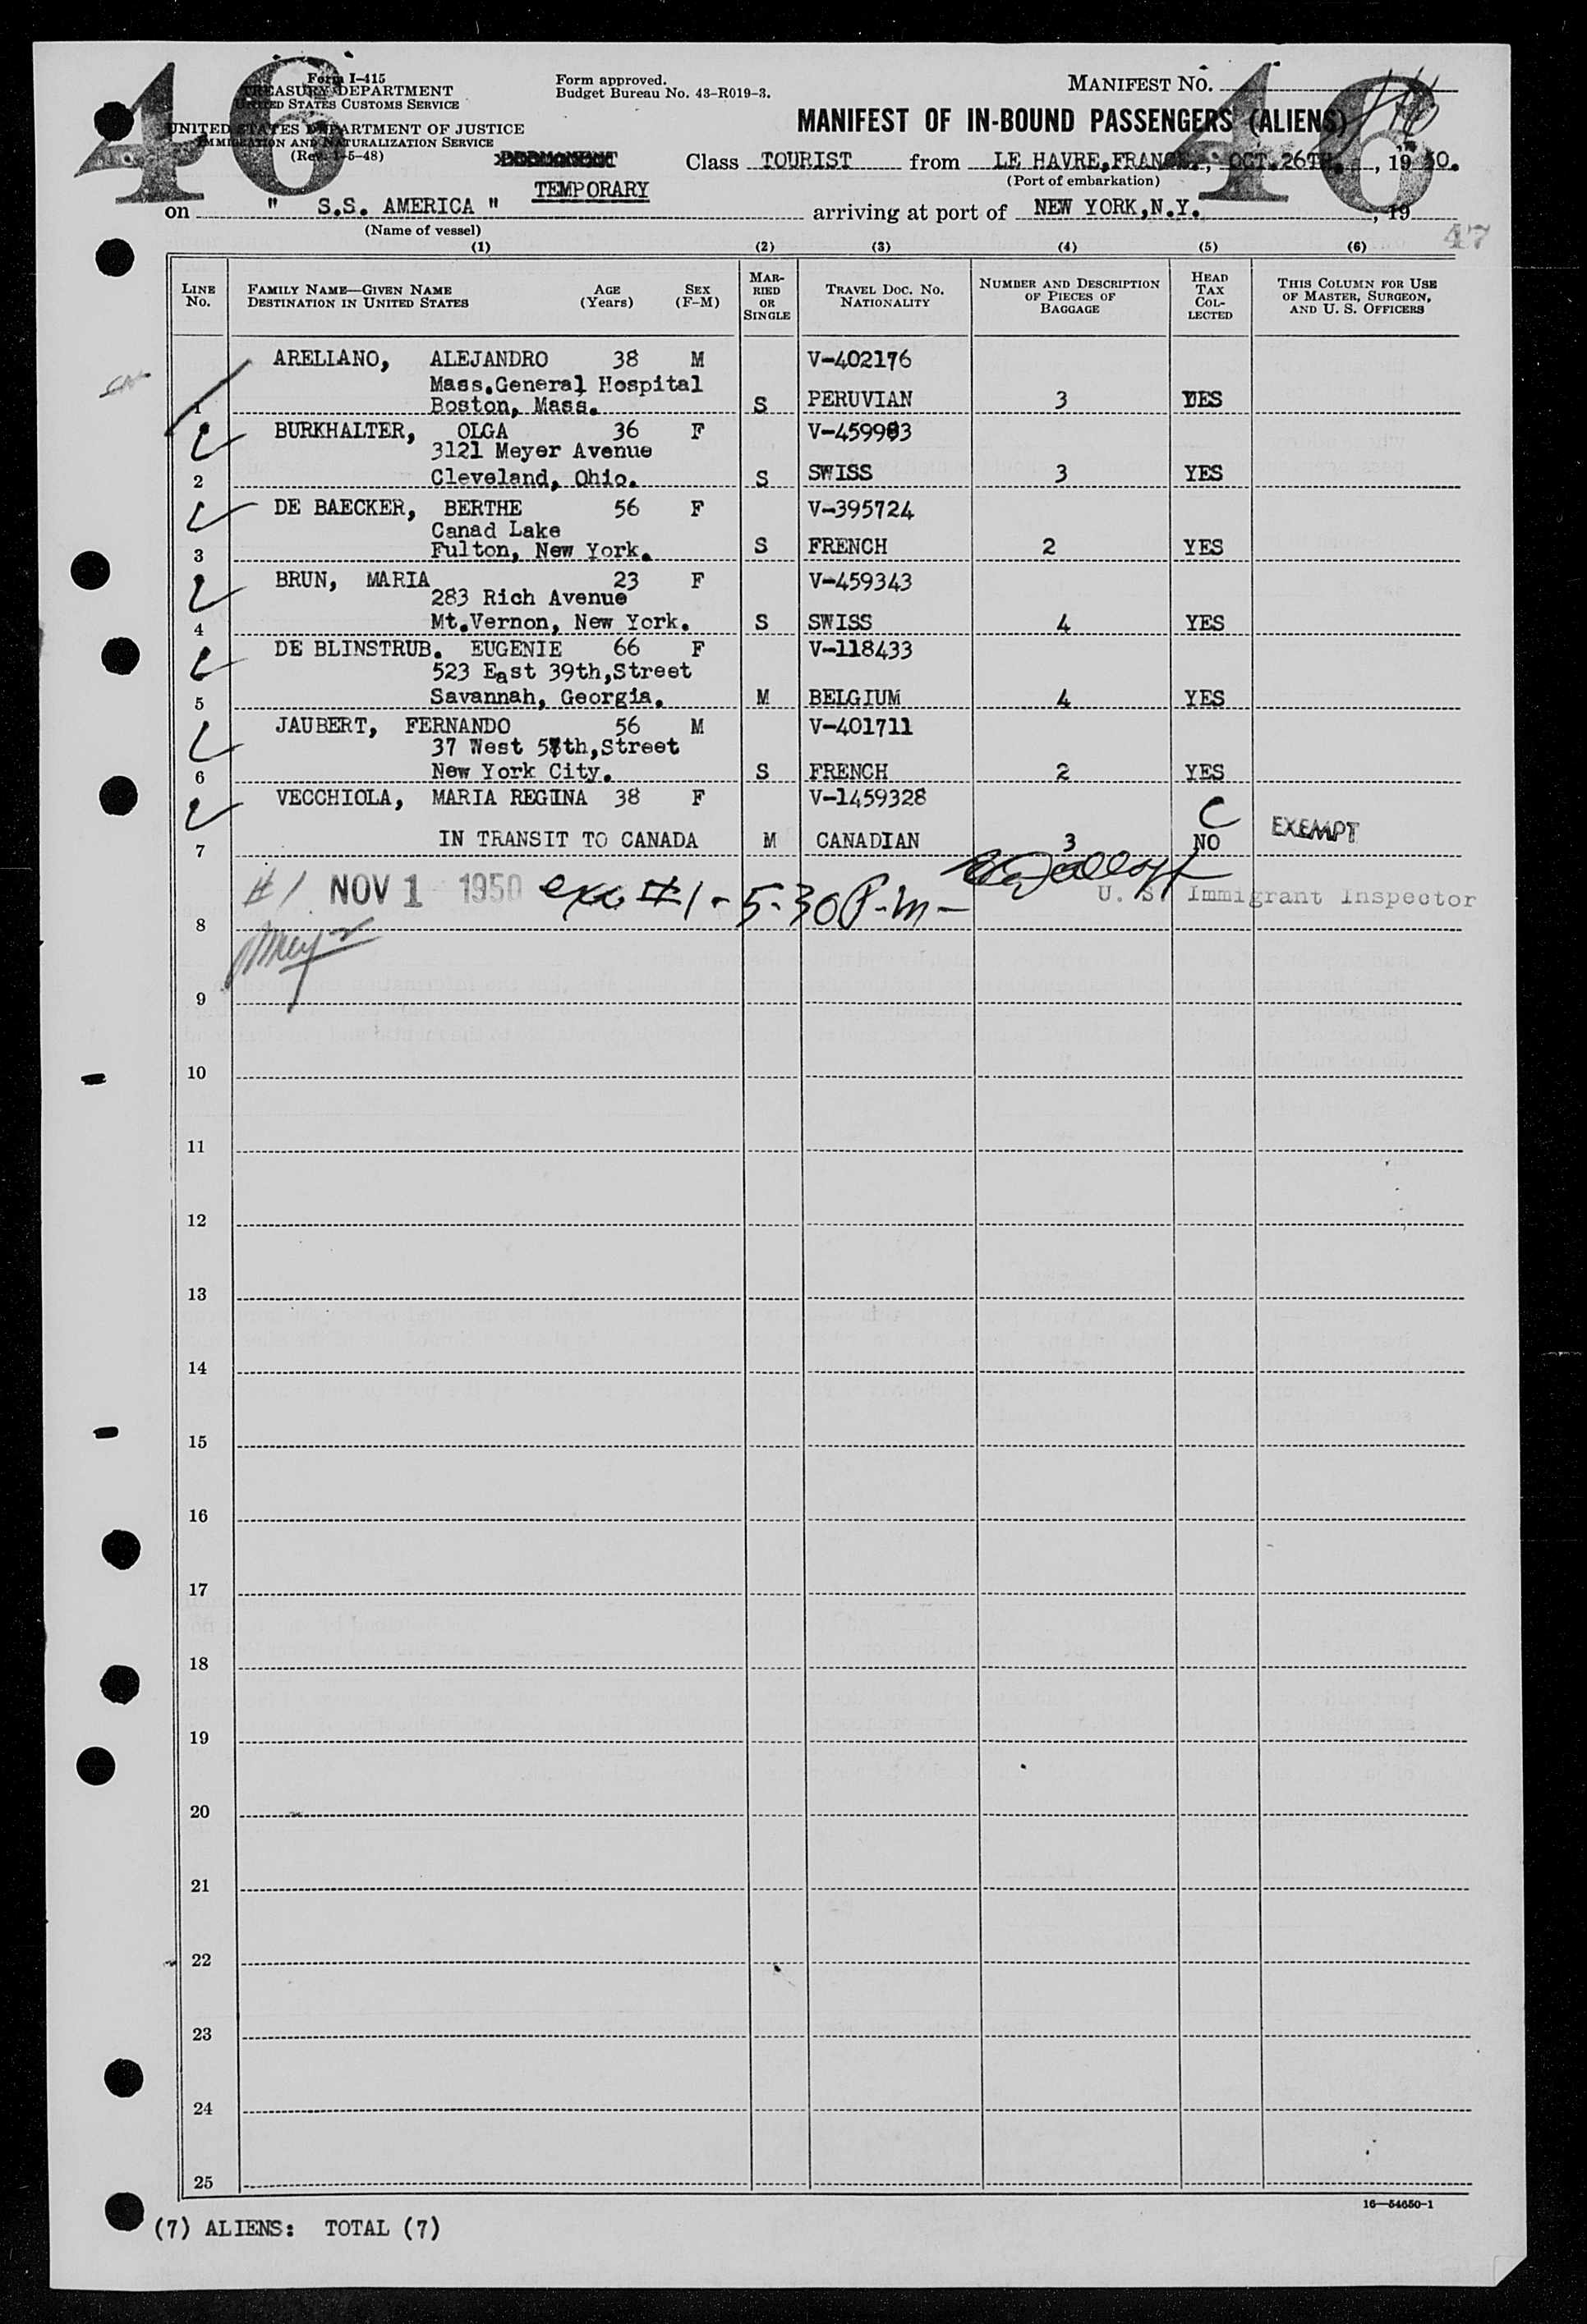 46
46
Form I-415
TREASURY DEPARTMENT
UNITED STATES CUSTOMS SERVICE
UNITED STATES DEPARTMENT OF JUSTICE
IMMIGRATION AND NATURALIZATION SERVICE
(Rev. 1-5-48)
Form approved.
Budget Bureau No. 43-R019-3.
MANIFEST NO. 46
MANIFEST OF IN-BOUND PASSENGERS (ALIENS)
TEMPORARY
Class TOURIST from LE HAVRE,FRANCE., OCT.26TH., 1950.
(Port of embarkation)
on " S.S. AMERICA " arriving at port of NEW YORK,N.Y. , 19
(Name of vessel)
47
(1) (2) (3) (4) (5) (6)
LINE No. FAMILY NAME—GIVEN NAME DESTINATION IN UNITED STATES AGE (Years) SEX (F-M) MARRIED OR SINGLE TRAVEL DOC. NO. NATIONALITY NUMBER AND DESCRIPTION OF PIECES OF BAGGAGE HEAD TAX COLLECTED THIS COLUMN FOR USE OF MASTER, SURGEON, AND U. S. OFFICERS
ARELLANO, ALEJANDRO 38 M V-402176
Mass.General Hospital
1 Boston, Mass. S PERUVIAN 3 YES
BURKHALTER, OLGA 36 F V-459983
3121 Meyer Avenue
2 Cleveland, Ohio. S SWISS 3 YES
DE BAECKER, BERTHE 56 F V-395724
Canad Lake
3 Fulton, New York. S FRENCH 2 YES
BRUN, MARIA 23 F V-459343
283 Rich Avenue
4 Mt.Vernon, New York. S SWISS 4 YES
DE BLINSTRUB. EUGENIE 66 F V-118433
523 East 39th,Street
5 Savannah, Georgia. M BELGIUM 4 YES
JAUBERT, FERNANDO 56 M V-401711
37 West 57th,Street
6 New York City. S FRENCH 2 YES
VECCHIOLA, MARIA REGINA 38 F V-1459328
C
7 IN TRANSIT TO CANADA M CANADIAN 3 NO EXEMPT
#1 NOV 1 1950 exc #1 - 5-30 P.m-
U. S. Immigrant Inspector
8
9
10
11
12
13
14
15
16
17
18
19
20
21
22
23
24
25
16—54650-1
(7) ALIENS: TOTAL (7)